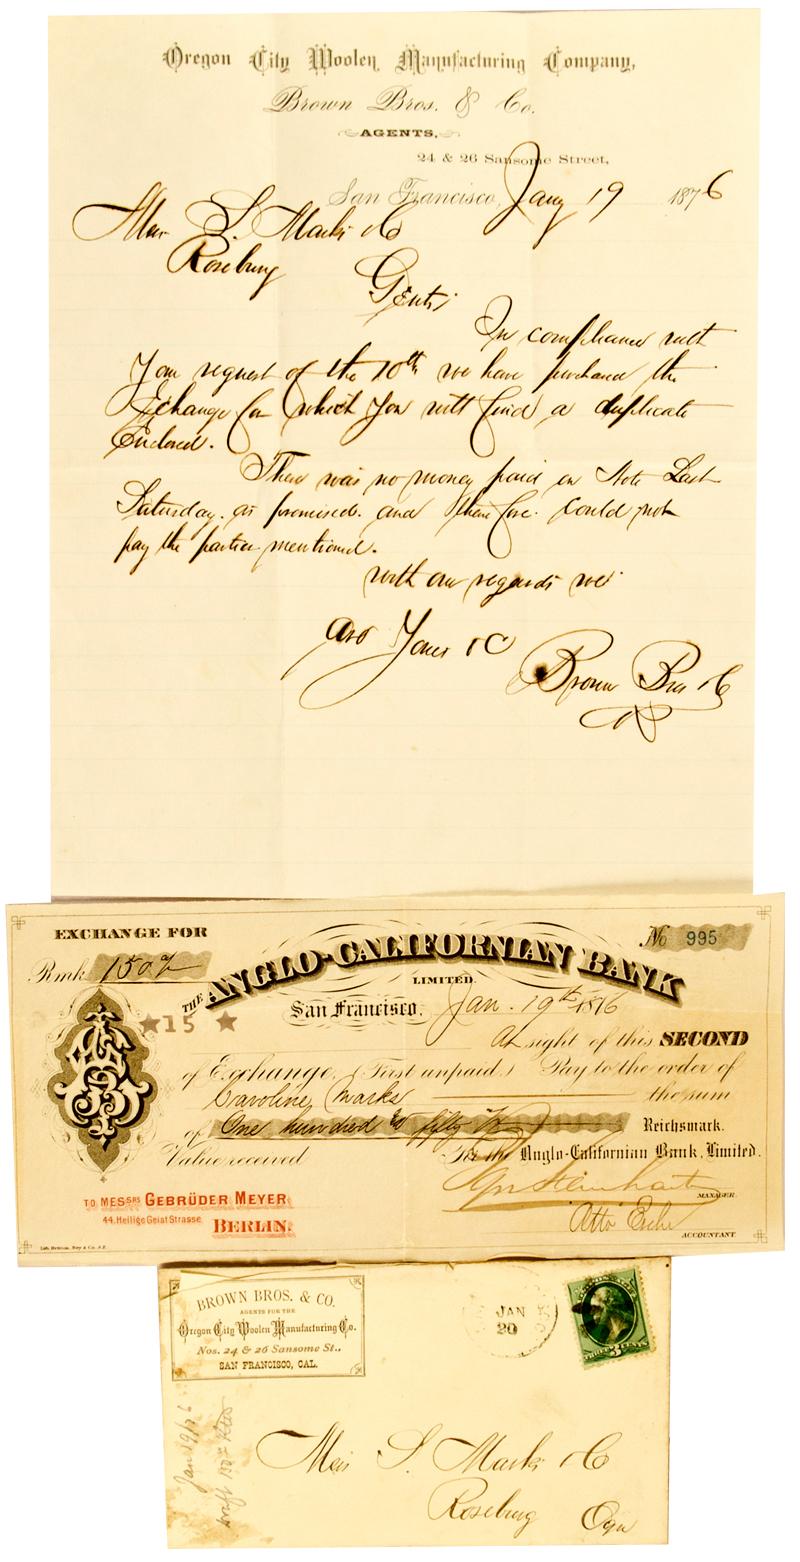 Oregon City Woolen Manufacturing Company,
Brown Bros. & Co.
AGENTS,
24 & 26 Sansome Street,
San Francisco, Jany 19 1876
Mess S. Marks & Co
Roseburg
Gents;
In compliance with
your request of the 10th we have purchased the
Exchange for which you will find a duplicate
Enclosed.
There was no money paid on Note Last
Saturday. as promised. and therefore. could not
pay the parties mentioned.
with our regards we
are Yours &C
Brown Bros & Co
EXCHANGE FOR
No 995
Rmk 150
THE ANGLO-CALIFORNIAN BANK
LIMITED.
San Francisco. Jan. 19th 1876
★15 ★
At sight of this SECOND
of Exchange, (First unpaid,) Pay to the order of
Caroline Marks the sum
of One hundred & fifty Reichsmark.
Value received For the Anglo-Californian Bank, Limited.
MANAGER.
TO MESSRS GEBRÜDER MEYER
44. Heilige Geist Strasse
BERLIN.
Otto
ACCOUNTANT.
BROWN BROS. & CO.
AGENTS FOR THE
Oregon City Woolen Manufacturing Co.
Nos. 24 & 26 Sansome St.,
SAN FRANCISCO, CAL.
JAN
20
3 CENTS
Jan 19/76
Mess S. Marks & Co
Roseburg
Ogn